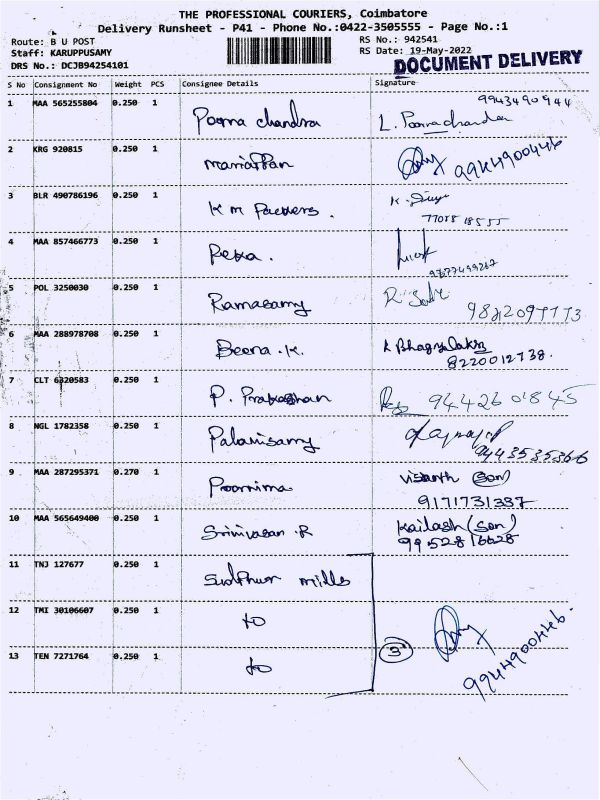 THE PROFESSIONAL COURIERS, Coimbatore
Delivery Runsheet - P41 - Phone No.:0422-3505555 - Page No.:1
Route: B U POST
RS No.: 942541
Staff: KARUPPUSAMY
RS Date: 19-May-2022
DRS No.: DCJB94254101
DOCUMENT DELIVERY
S No Consignment No Weight PCS Consignee Details Signature
1 MAA 565255804 0.250 1 Poorna chandra L. Poornachandra
9943490944
2 KRG 920815 0.250 1 mariappan
9944900446
3 BLR 490786196 0.250 1 K M Packers.
4 MAA 857466773 0.250 1
5 POL 3250030 0.250 1 Ramasamy
6 MAA 288978708 0.250 1 Beena.K.
8220012738.
7 CLT 6320583 0.250 1 P. Prakashan
8 NGL 1782358 0.250 1 Palanisamy
9443535366
9 MAA 287295371 0.270 1 Poornima (Son)
9171731337
10 MAA 565649400 0.250 1 Srinivasan.R Kailash (Son)
9952816628
11 TNJ 127677 0.250 1 mills
12 TMI 30106607 0.250 1 to
13 TEN 7271764 0.250 1 to
3
9944900446.